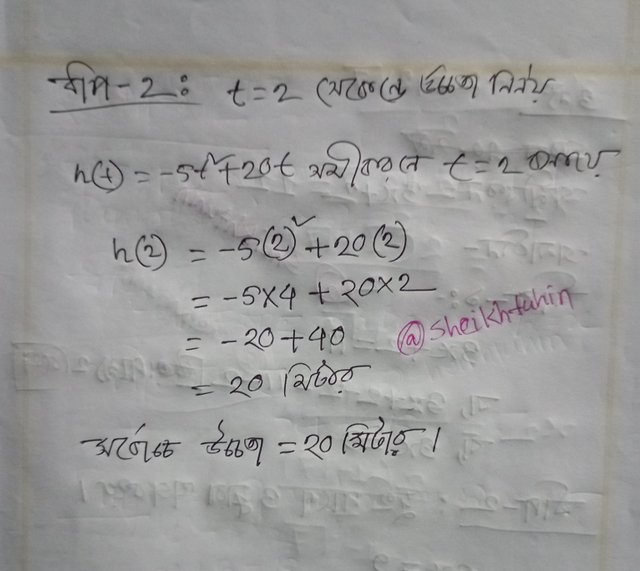 ধাপ-2: t=2 সেকেন্ডে উচ্চতা নির্ণয়
h(t) = -5t²+20t সমীকরণে t=2 বসাই
h(2) = -5(2)²+20(2)
= -5×4 + 20×2
= -20+40
= 20 মিটার
@Sheikhfahin
সর্বোচ্চ উচ্চতা = 20 মিটার।